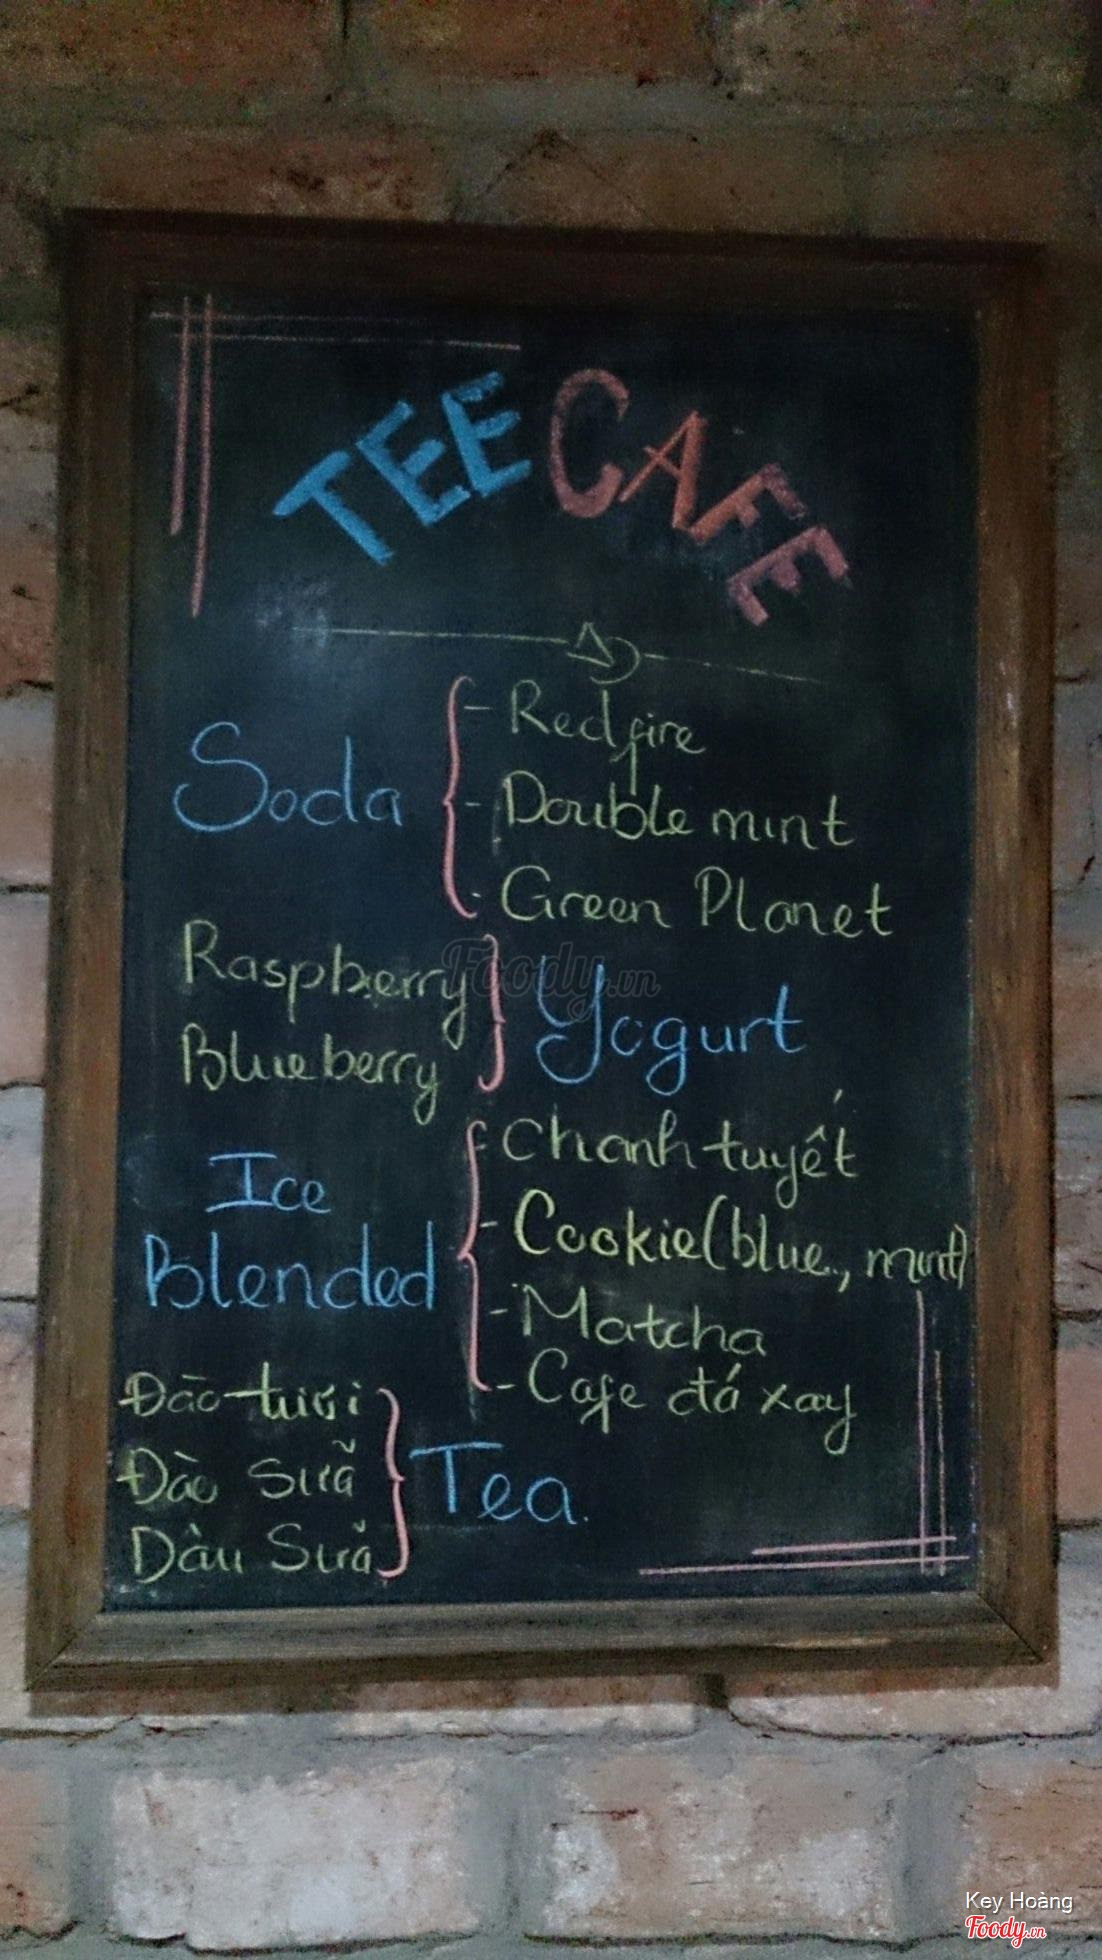 TEE CAFE
Soda
- Redfire
- Double mint
- Green Planet
Raspberry
Blueberry
Yogurt
Ice
Blended
- Chanh tuyết
- Cookie (blue, mint)
- Matcha
- Cafe đá xay
Đào tươi
Đào Sữa
Dâu Sữa
Tea.
Foody.vn
Key Hoàng
Foody.vn